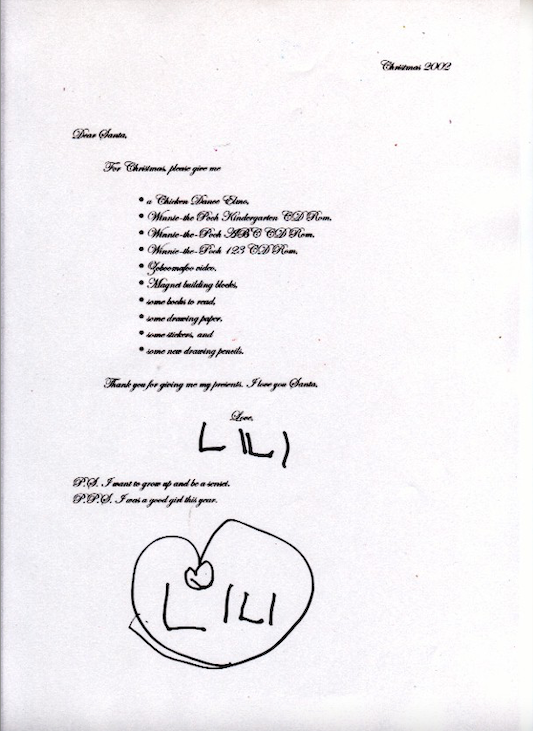 Christmas 2002
Dear Santa,
For Christmas, please give me
• a Chicken Dance Elmo,
• Winnie-the Pooh Kindergarten CD Rom,
• Winnie-the-Pooh ABC CD Rom,
• Winnie-the-Pooh 123 CD Rom,
• Zoboomafoo video,
• Magnet building blocks,
• some books to read,
• some drawing paper,
• some stickers, and
• some new drawing pencils.
Thank you for giving me my presents. I love you Santa.
Love,
LILI
P.S. I want to grow up and be a sensei.
P.P.S. I was a good girl this year.
LILI